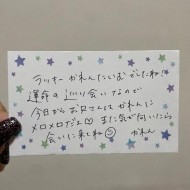 ラッキー かれんたいむ でしたね!!
運命の巡り会いなので
今日からお兄さんは かれんに
メロメロだよ♡ また気が向いたら
会いに来てね☺
かれん